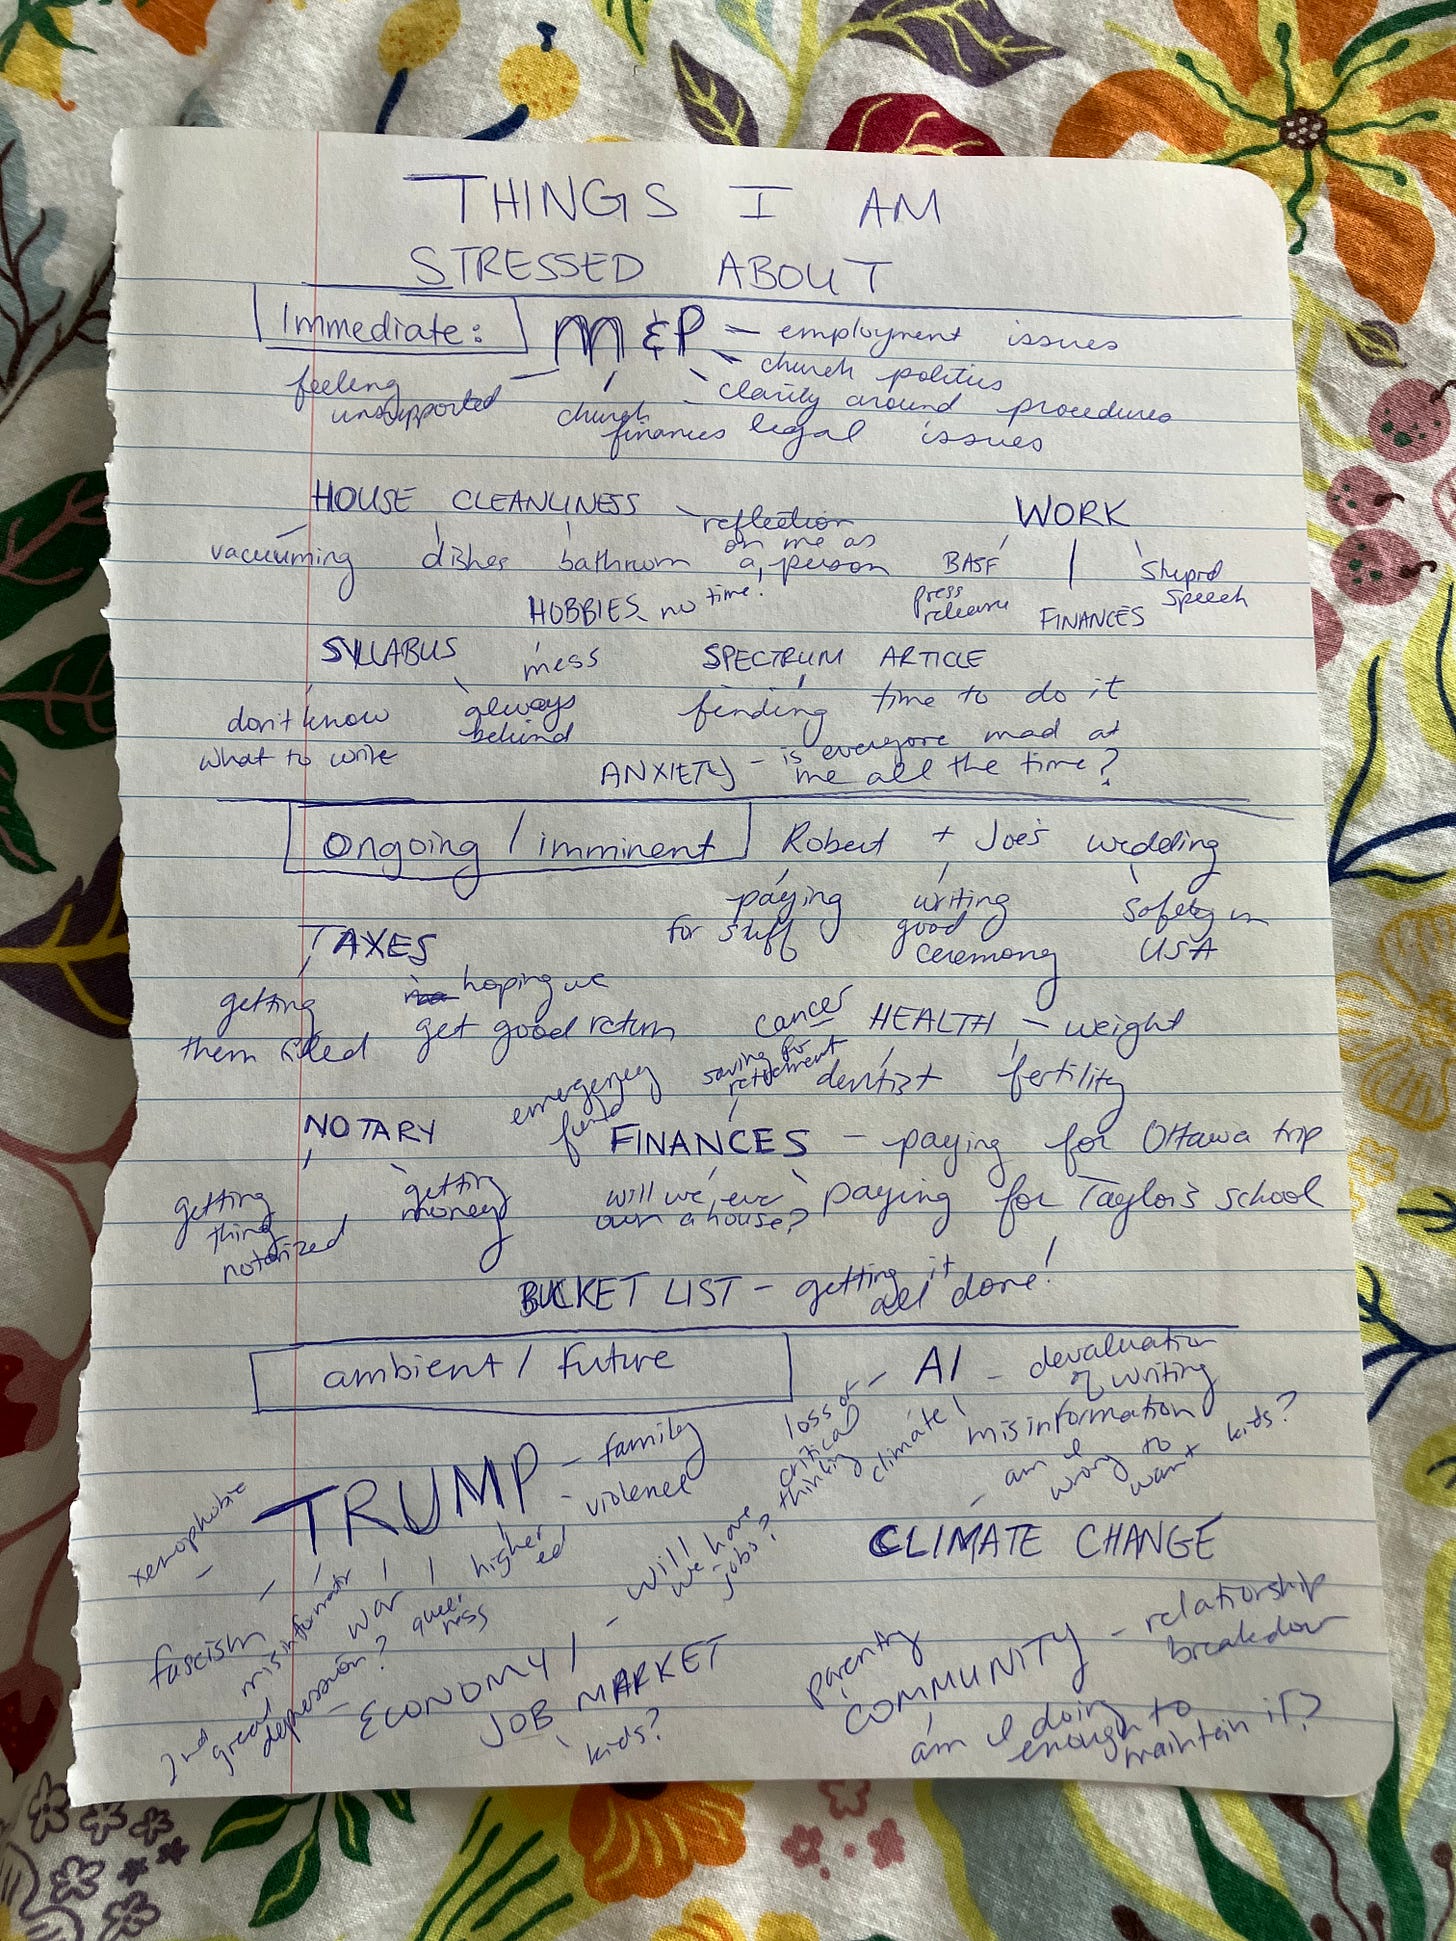 THINGS I AM
STRESSED ABOUT
Immediate: M & P - employment issues
church politics
clarity around procedures
legal issues
church finances
feeling unsupported
HOUSE CLEANLINESS
vacuuming dishes bathroom
reflection on me as a person
WORK
BASF press release
FINANCES
speech
HOBBIES no time!
mess
SYLLABUS
don't know what to write
always behind
SPECTRUM ARTICLE
finding time to do it
ANXIETY - is everyone mad at me all the time?
Ongoing / imminent
Robert + Joe's wedding
paying for stuff
writing good ceremony
safety in USA
TAXES
getting them filed
hoping we get good return
HEALTH - weight
cancer
dentist
fertility
NOTARY
getting thing notarized
getting money
FINANCES - paying for Ottawa trip
emergency fund
saving for retirement
will we ever own a house?
paying for Taylor's school
BUCKET LIST - getting it all done!
ambient / future
AI - devaluation of writing
misinformation
climate!
loss of critical thinking
TRUMP - family
violence
higher ed
queerness
war
misinformation
fascism
xenophobia
CLIMATE CHANGE
am I wrong to want kids?
ECONOMY / JOB MARKET
will we have jobs?
2nd great depression?
kids?
COMMUNITY - relationship breakdown
am I doing enough to maintain it?